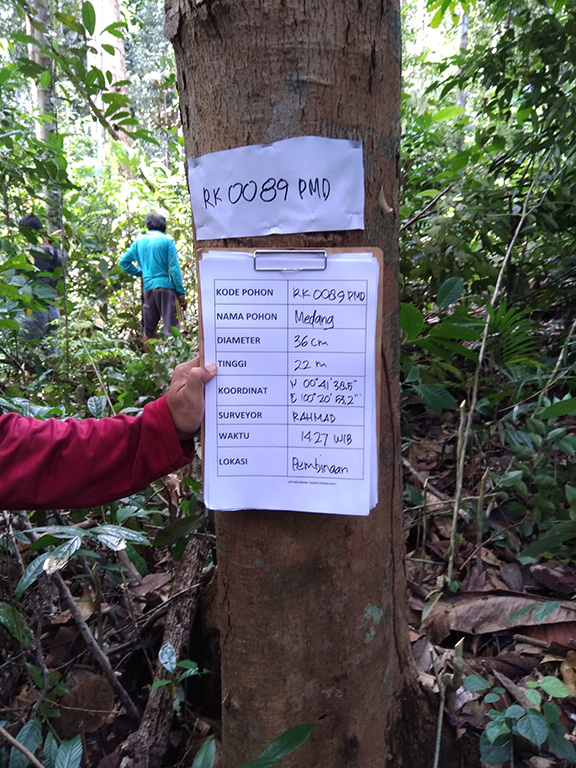 RK 0089 PMD
KODE POHON RK 0089 PMD
NAMA POHON Medang
DIAMETER 36 cm
TINGGI 22 m
KOORDINAT N 00°41'38.5"
E 100°20'53.2"
SURVEYOR RAHMAD
WAKTU 14.27 WIB
LOKASI Pembinaan